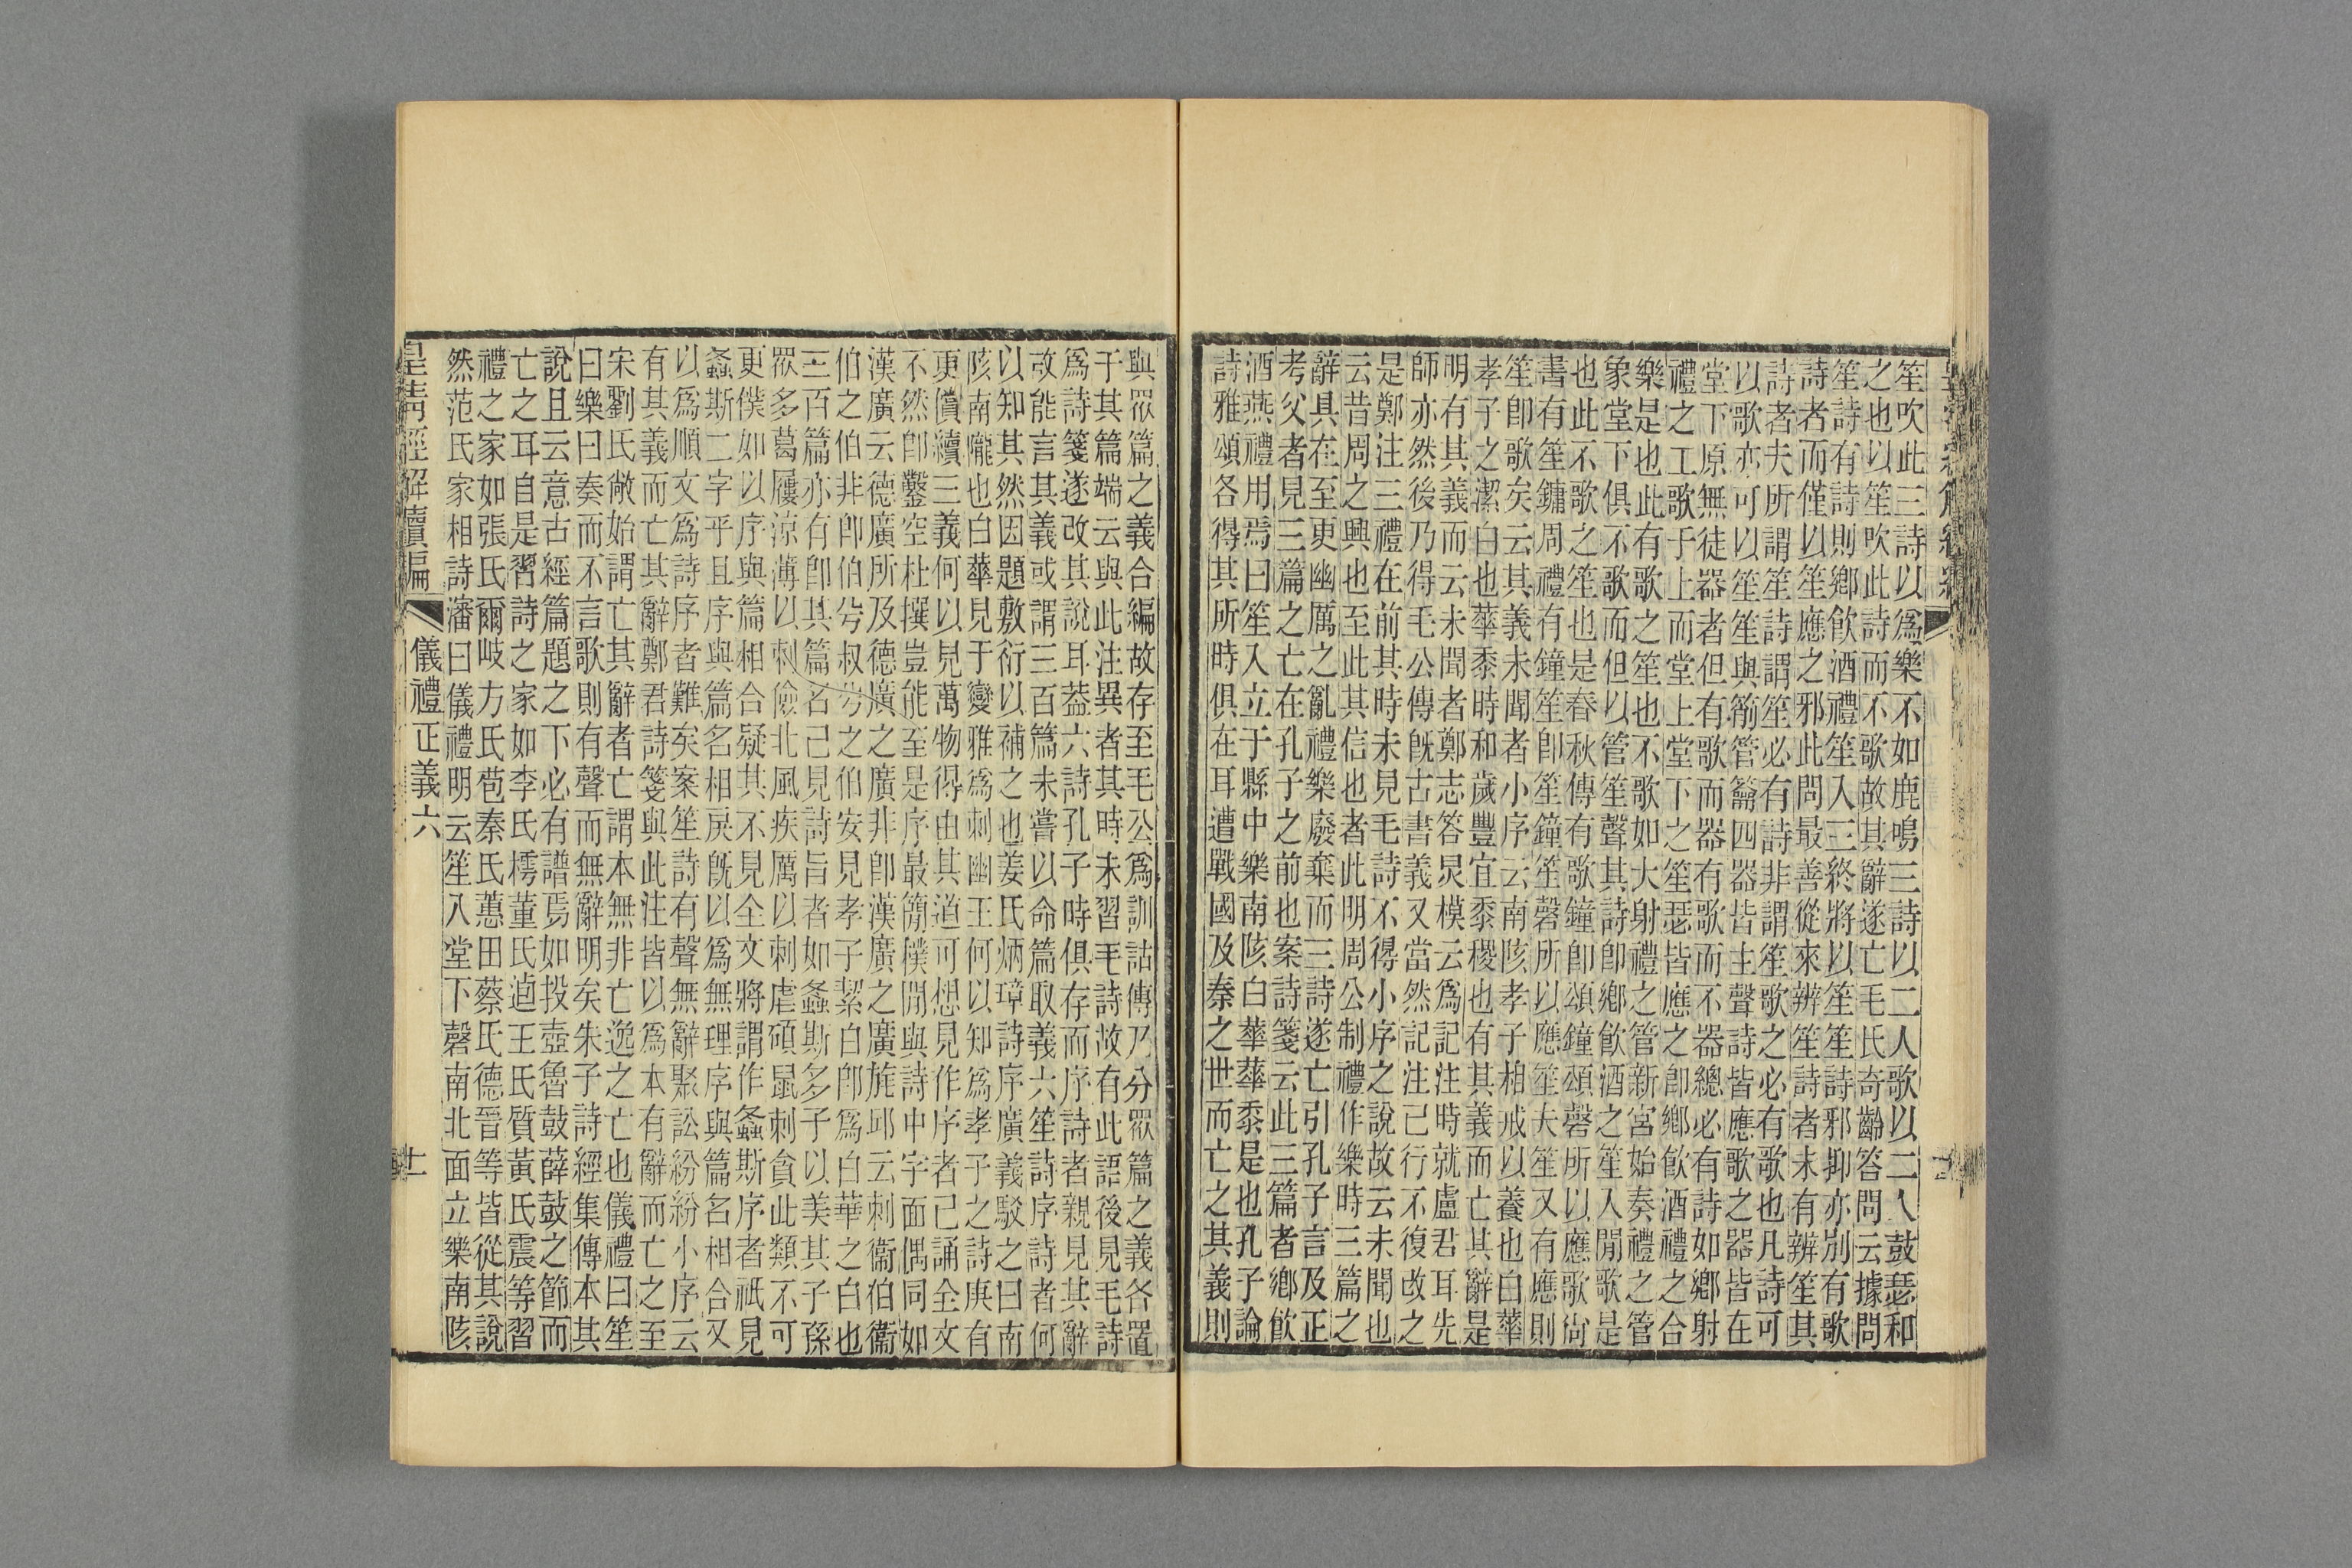 笙吹此三詩以爲樂不如鹿鳴三詩以二人歌以二人鼓瑟和
之也以笙吹此詩而不歌故其辭遂亡毛氏奇齡答問云據問
笙詩有詩則鄉飲酒禮笙入三終將以笙笙詩邪抑亦別有歌
詩者而僅以笙應之邪此問最善從來辨笙詩者未有辨笙其
詩者夫所謂笙詩謂笙必有詩非謂笙歌之必有歌也凡詩可
以歌亦可以笙笙與簫管籥四器皆主聲詩皆應歌之器皆在
堂下原無徒器者但有歌而器有歌而不器總必有詩如鄉射
禮之工歌于上而堂上堂下之笙瑟皆應之卽鄉飲酒禮之合
樂是也此有歌之笙也不歌如大射禮之管新宮始奏禮之管
象堂下俱不歌而但以管笙聲其詩卽鄉飲酒之笙人閒歌是
也此不歌之笙也是春秋傳有歌鐘卽頌鐘頌磬所以應歌尙
書有笙鏞周禮有鐘笙卽笙鐘笙磬所以應笙夫笙又有應則
笙卽歌矣云其義未聞者小序云南陔孝子相戒以養也白華
孝子之潔白也華黍時和歲豐宜黍稷也有其義而亡其辭是
明有其義而云未聞者鄭志答炅模云爲記注時就盧君耳先
師亦然後乃得毛公傳旣古書義又當然記注已行不復改之
是鄭注三禮在前其時未見毛詩不得小序之說故云未聞也
云昔周之興也至此其信也者此明周公制禮作樂時三篇之
辭具在至更幽厲之亂禮樂廢棄而三詩遂亡引孔子言及正
考父者見三篇之亡在孔子之前也案詩箋云此三篇者鄉飲
酒燕禮用焉曰笙入立于縣中樂南陔白華華黍是也孔子論
詩雅頌各得其所時俱在耳遭戰國及秦之世而亡之其義則
與眾篇之義合編故存至毛公爲訓詁傳乃分眾篇之義各置
于其篇端云與此注異者其時未習毛詩故有此語後見毛詩
爲詩箋遂改其說耳蓋六詩孔子時俱存而序詩者親見其辭
故能言其義或謂三百篇未嘗以命篇取義六笙詩序詩者何
以知其然因題敷衍以補之也姜氏炳璋詩序廣義駁之曰南
陔南隴也白華見于變雅爲刺幽王何以知爲孝子之詩庚有
更償續三義何以見萬物得由其道可想見作序者已誦全文
不然卽鑿空杜撰豈能至是序最簡樸閒與詩中字面偶同如
漢廣云德廣所及德廣之廣非卽漢廣之廣旄邱云刺衞伯衞
伯之伯非卽伯兮叔兮之伯安見孝子絜白卽爲白華之白也
三百篇亦有卽其篇名已見詩旨者如螽斯多子以美其子孫
眾多葛屨涼薄以刺儉北風疾厲以刺虐碩鼠刺貪此類不可
更僕如以序與篇相合疑其不見全文將謂作螽斯序者祇見
螽斯二字乎且序與篇名相戾旣以爲無理序與篇名相合又
以爲順文爲詩序者難矣案笙詩有聲無辭聚訟紛紛小序云
有其義而亡其辭鄭君詩箋與此注皆以爲本有辭而亡之至
宋劉氏敞始謂亡其辭者亡謂本無非亡逸之亡也儀禮曰笙
曰樂曰奏而不言歌則有聲而無辭明矣朱子詩經集傳本其
說且云意古經篇題之下必有譜焉如投壺魯鼓薛鼓之節而
亡之耳自是習詩之家如李氏樗董氏逌王氏質黃氏震等習
禮之家如張氏爾岐方氏苞秦氏蕙田蔡氏德晉等皆從其說
然范氏家相詩瀋曰儀禮明云笙入堂下磬南北面立樂南陔
皇清經解續編
儀禮正義六